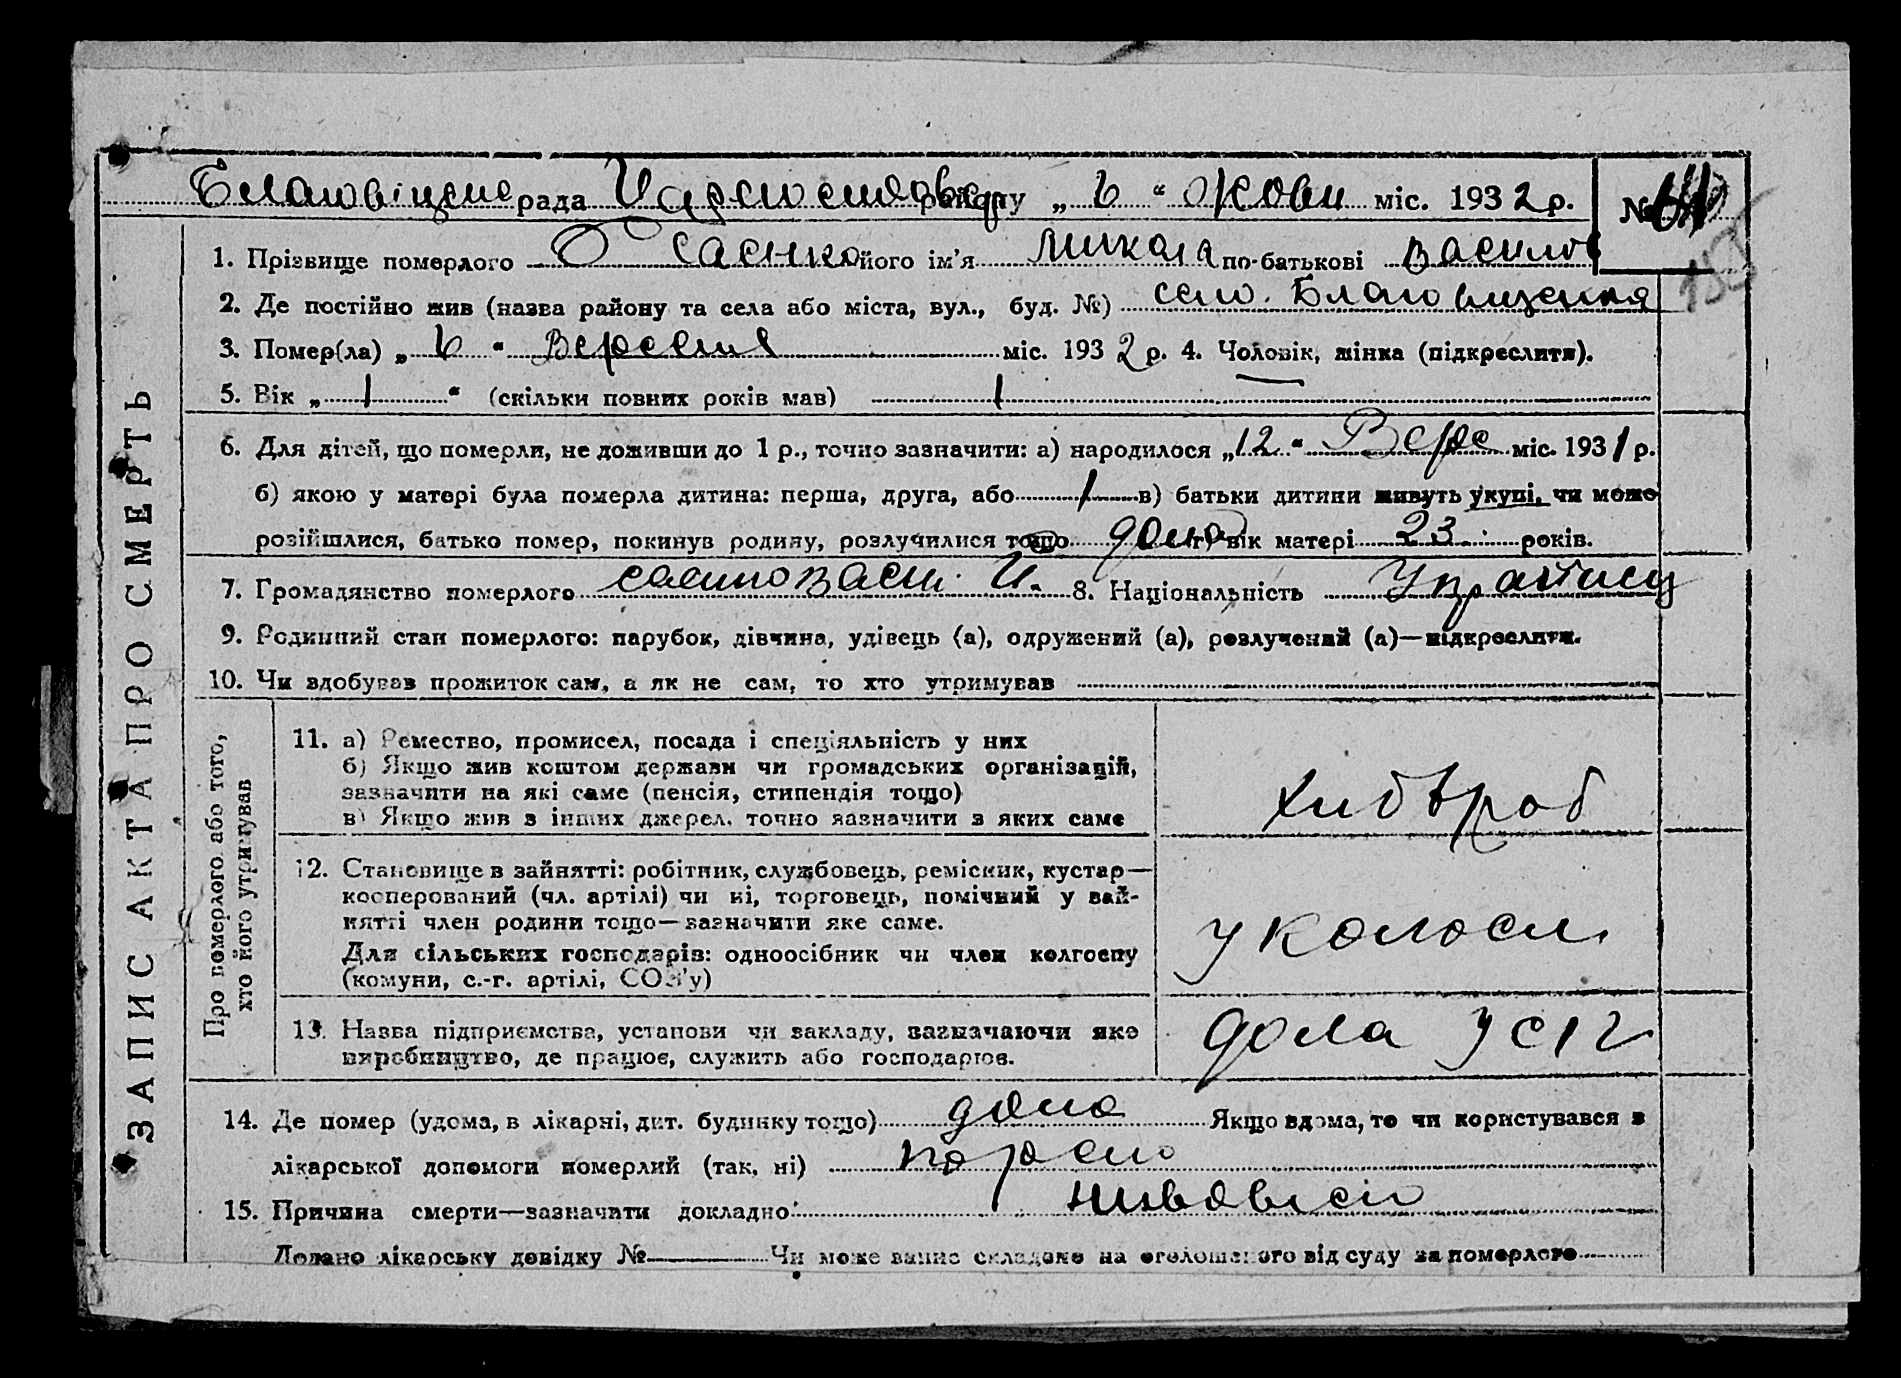 рада району „ 6 “ жовт міс. 1932 р. №
1. Прізвище померлого Осаєнко його ім’я Микола по-батькові Васильов
2. Де постійно жив (назва району та села або міста, вул., буд. №) село. Благовищення
3. Помер(ла) „ 6 “ Вересня міс. 1932 р. 4. Чоловік, жінка (підкреслити).
5. Вік „ 1 “ (скільки повних років мав) 1
6. Для дітей, що померли, не доживши до 1 р., точно зазначити: а) народилося „12“ Верес міс. 1931 р.
б) якою у матері була померла дитина: перша, друга, або 1 в) батьки дитини живуть укупі, чи може
розійшлися, батько помер, покинув родину, розлучилися тощо г) вік матері 23 років.
7. Громадянство померлого 8. Національність Українец
9. Родинний стан померлого: парубок, дівчина, удівець (а), одружений (а), розлучений (а)—підкреслити.
10. Чи здобував прожиток сам, а як не сам, то хто утримував
ЗАПИС АКТА ПРО СМЕРТЬ
Про померлого або того, хто його утримував
11. а) Ремество, промисел, посада і спеціяльність у них
б) Якщо жив коштом держави чи громадських організацій,
зазначити на які саме (пенсія, стипендія тощо)
в) Якщо жив з інших джерел, точно зазначити з яких саме
хлібороб
12. Становище в зайнятті: робітник, службовець, ремісник, кустар—
кооперований (чл. артілі) чи ні, торговець, помічний у зай-
нятті член родини тощо—зазначити яке саме.
Для сільських господарів: одноосібник чи член колгоспу
(комуни, с.-г. артілі, СОЗ’у)
у колгосп
13. Назва підприємства, установи чи закладу, зазначаючи яке
виробництво, де працює, служить або господарює.
14. Де помер (удома, в лікарні, дит. будинку тощо) дома Якщо вдома, то чи користувався з
лікарської допомоги померлий (так, ні)
15. Причина смерти—зазначити докладно:
Додано лікарську довідку № Чи може запис складено на оголошеного від суду за померлого